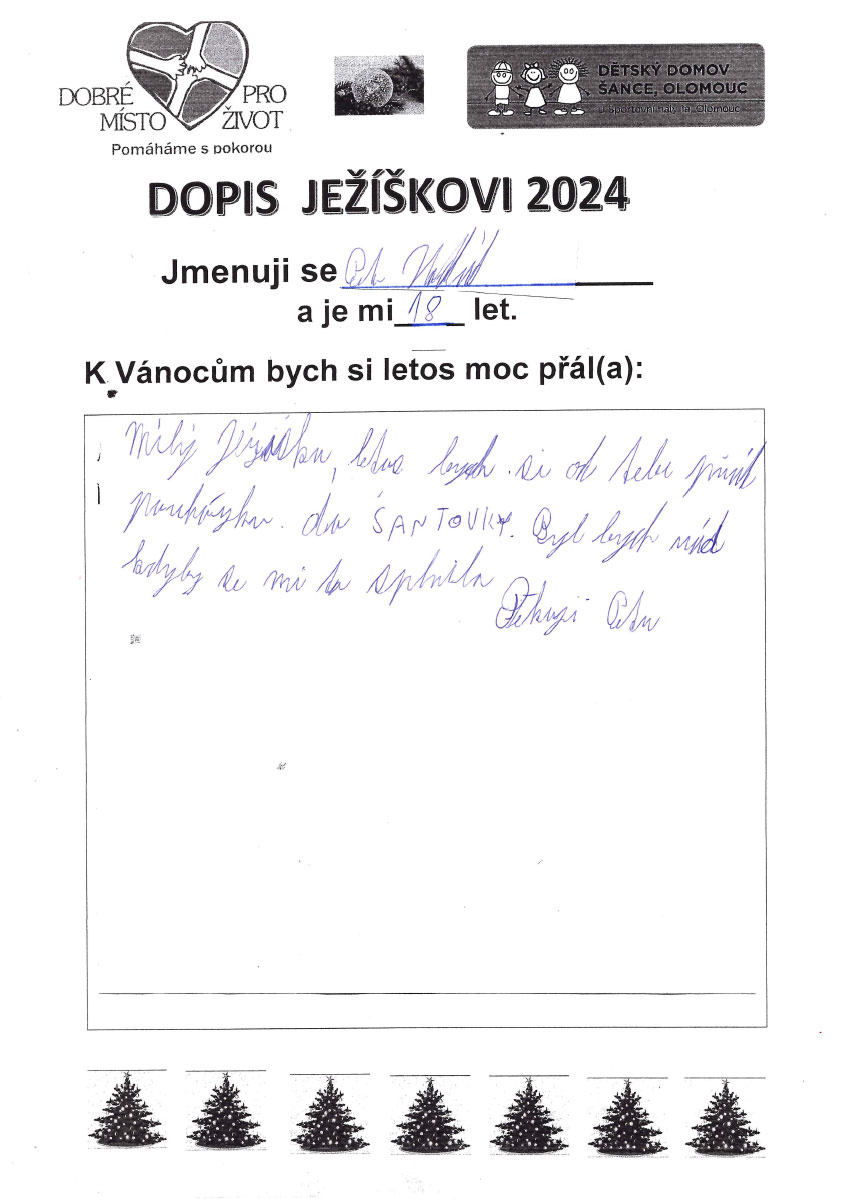 DOBRÉ PRO
MÍSTO ŽIVOT
Pomáháme s pokorou
DĚTSKÝ DOMOV
ŠANCE, OLOMOUC
U Sportovní haly 1a, Olomouc
DOPIS JEŽÍŠKOVI 2024
Jmenuji se Petr
a je mi 18 let.
K Vánocům bych si letos moc přál(a):
Milý Ježíšku, letos bych si od tebe přál
poukázku do ŠANTOVKY. Byl bych rád
kdyby se mi to splnilo
Děkuji Petr